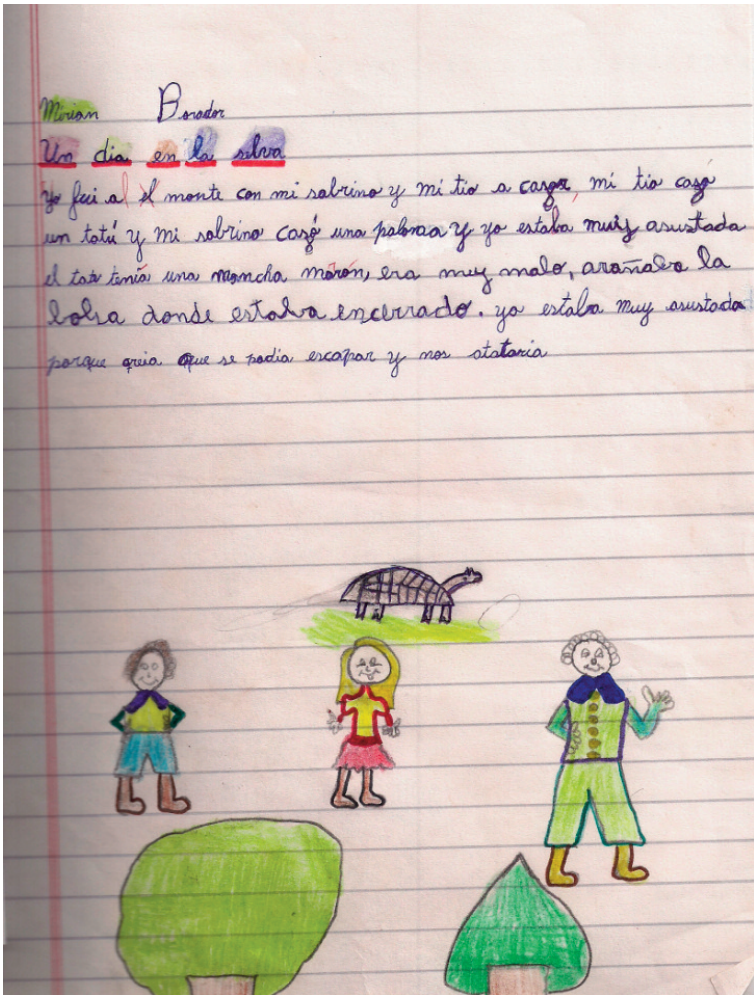 Mirian Borador
Un dia en la selva
yo fui al monte con mi sobrino y mi tio a cazar, mi tio cazó
un tatú y mi sobrino cazó una paloma y yo estaba muy asustada
el tatu tenía una mancha marón, era muy malo, arañaba la
bolsa donde estava encerrado. yo estaba muy asustada
porque creia que se podia escapar y nos atataria